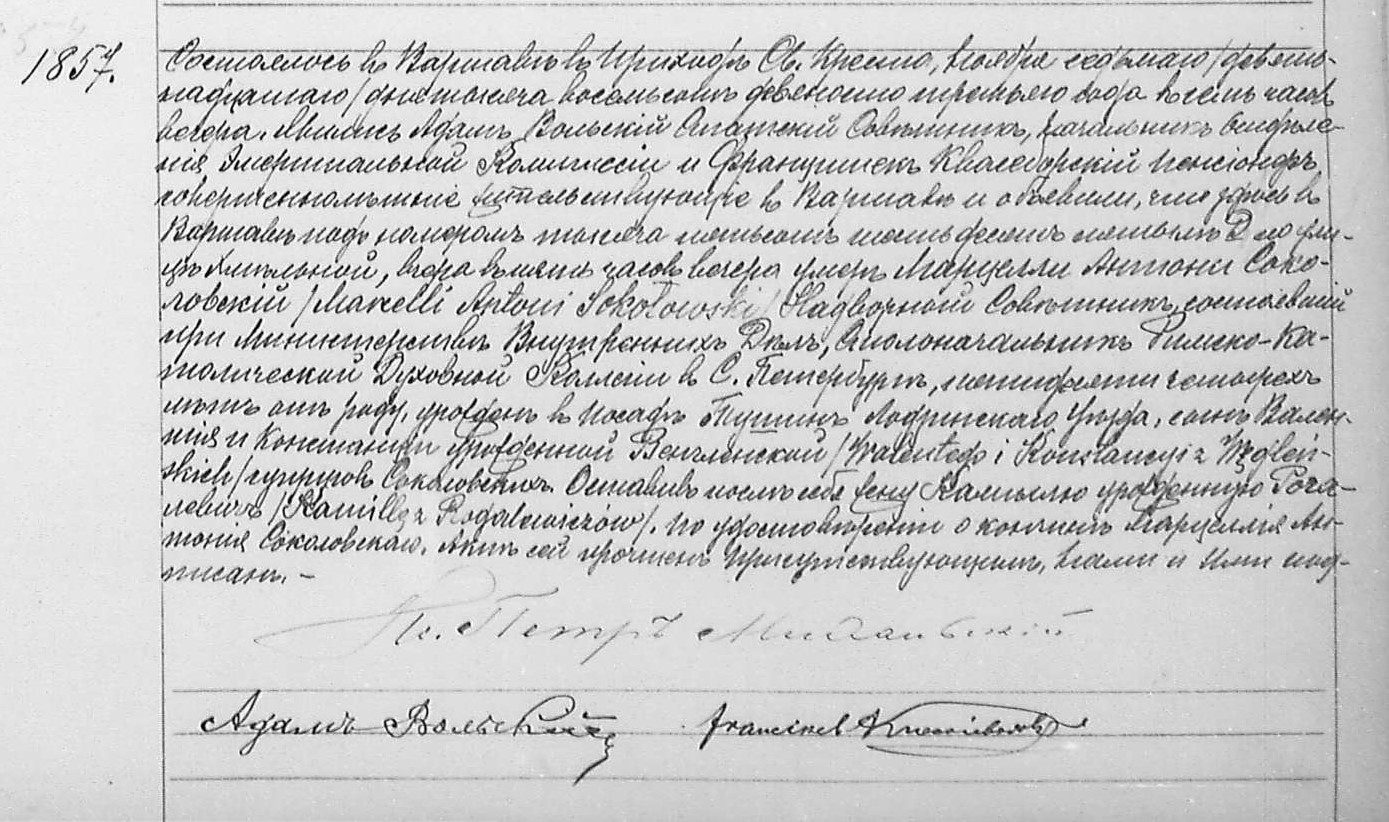 1857.
Состоялось въ Варшавѣ въ Приходѣ Св. Креста, Ноября седьмаго /девять-
надцатаго/ дня тысяча восемьсотъ девяносто третьяго года въ семь часовъ
вечера. Явились Адамъ Вольскій Статскій Совѣтникъ, Начальникъ Отдѣле-
нія Эмеритальной Коммиссіи и Францишекъ Квасеборскій пенсіонеръ
совершеннолѣтніе жительствующіе въ Варшавѣ и объявили, что здѣсь въ
Варшавѣ подъ номеромъ тысяча пятьсотъ шестьдесятъ пятымъ D по ули-
цѣ Хмѣльной, вчера въ пять часовъ вечера умеръ Марцелли Антони Соко-
ловскій /Marcelli Antoni Sokołowski/ Надворный Совѣтникъ, состоявшій
при Министерствѣ Внутреннихъ Дѣлъ, Столоначальникъ Римско-Ка-
толической Духовной Коллегіи въ С. Петербургѣ, пятидесяти четырехъ
лѣтъ отъ роду, урожденъ въ посадѣ Тушинъ Лодзинскаго Уѣзда, сынъ Вален-
тія и Констанціи урожденной Венгленской /Walentego i Konstancyi z Węgleń-
skich/ супруговъ Соколовскихъ. Оставивъ послѣ себя жену Камиллю урожденную Рога-
левичъ /Kamillę z Rogalewiczów/. По удостовѣреніи о кончинѣ Марцеллія Ан-
тонія Соколовскаго, Актъ сей прочтенъ присутствующимъ, Нами и ими под-
писанъ. –
Кс. Петръ
Адамъ Вольскій Franciszek